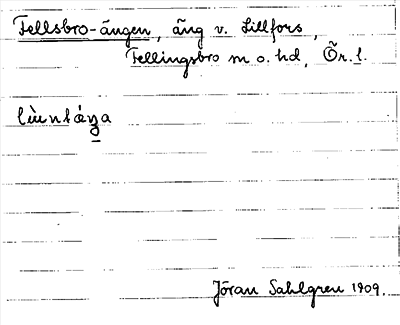 Fellsbro-ängen, äng v. Lillfors,
Fellingsbro sn o. hd, Ör. l.
Jöran Sahlgren 1909.